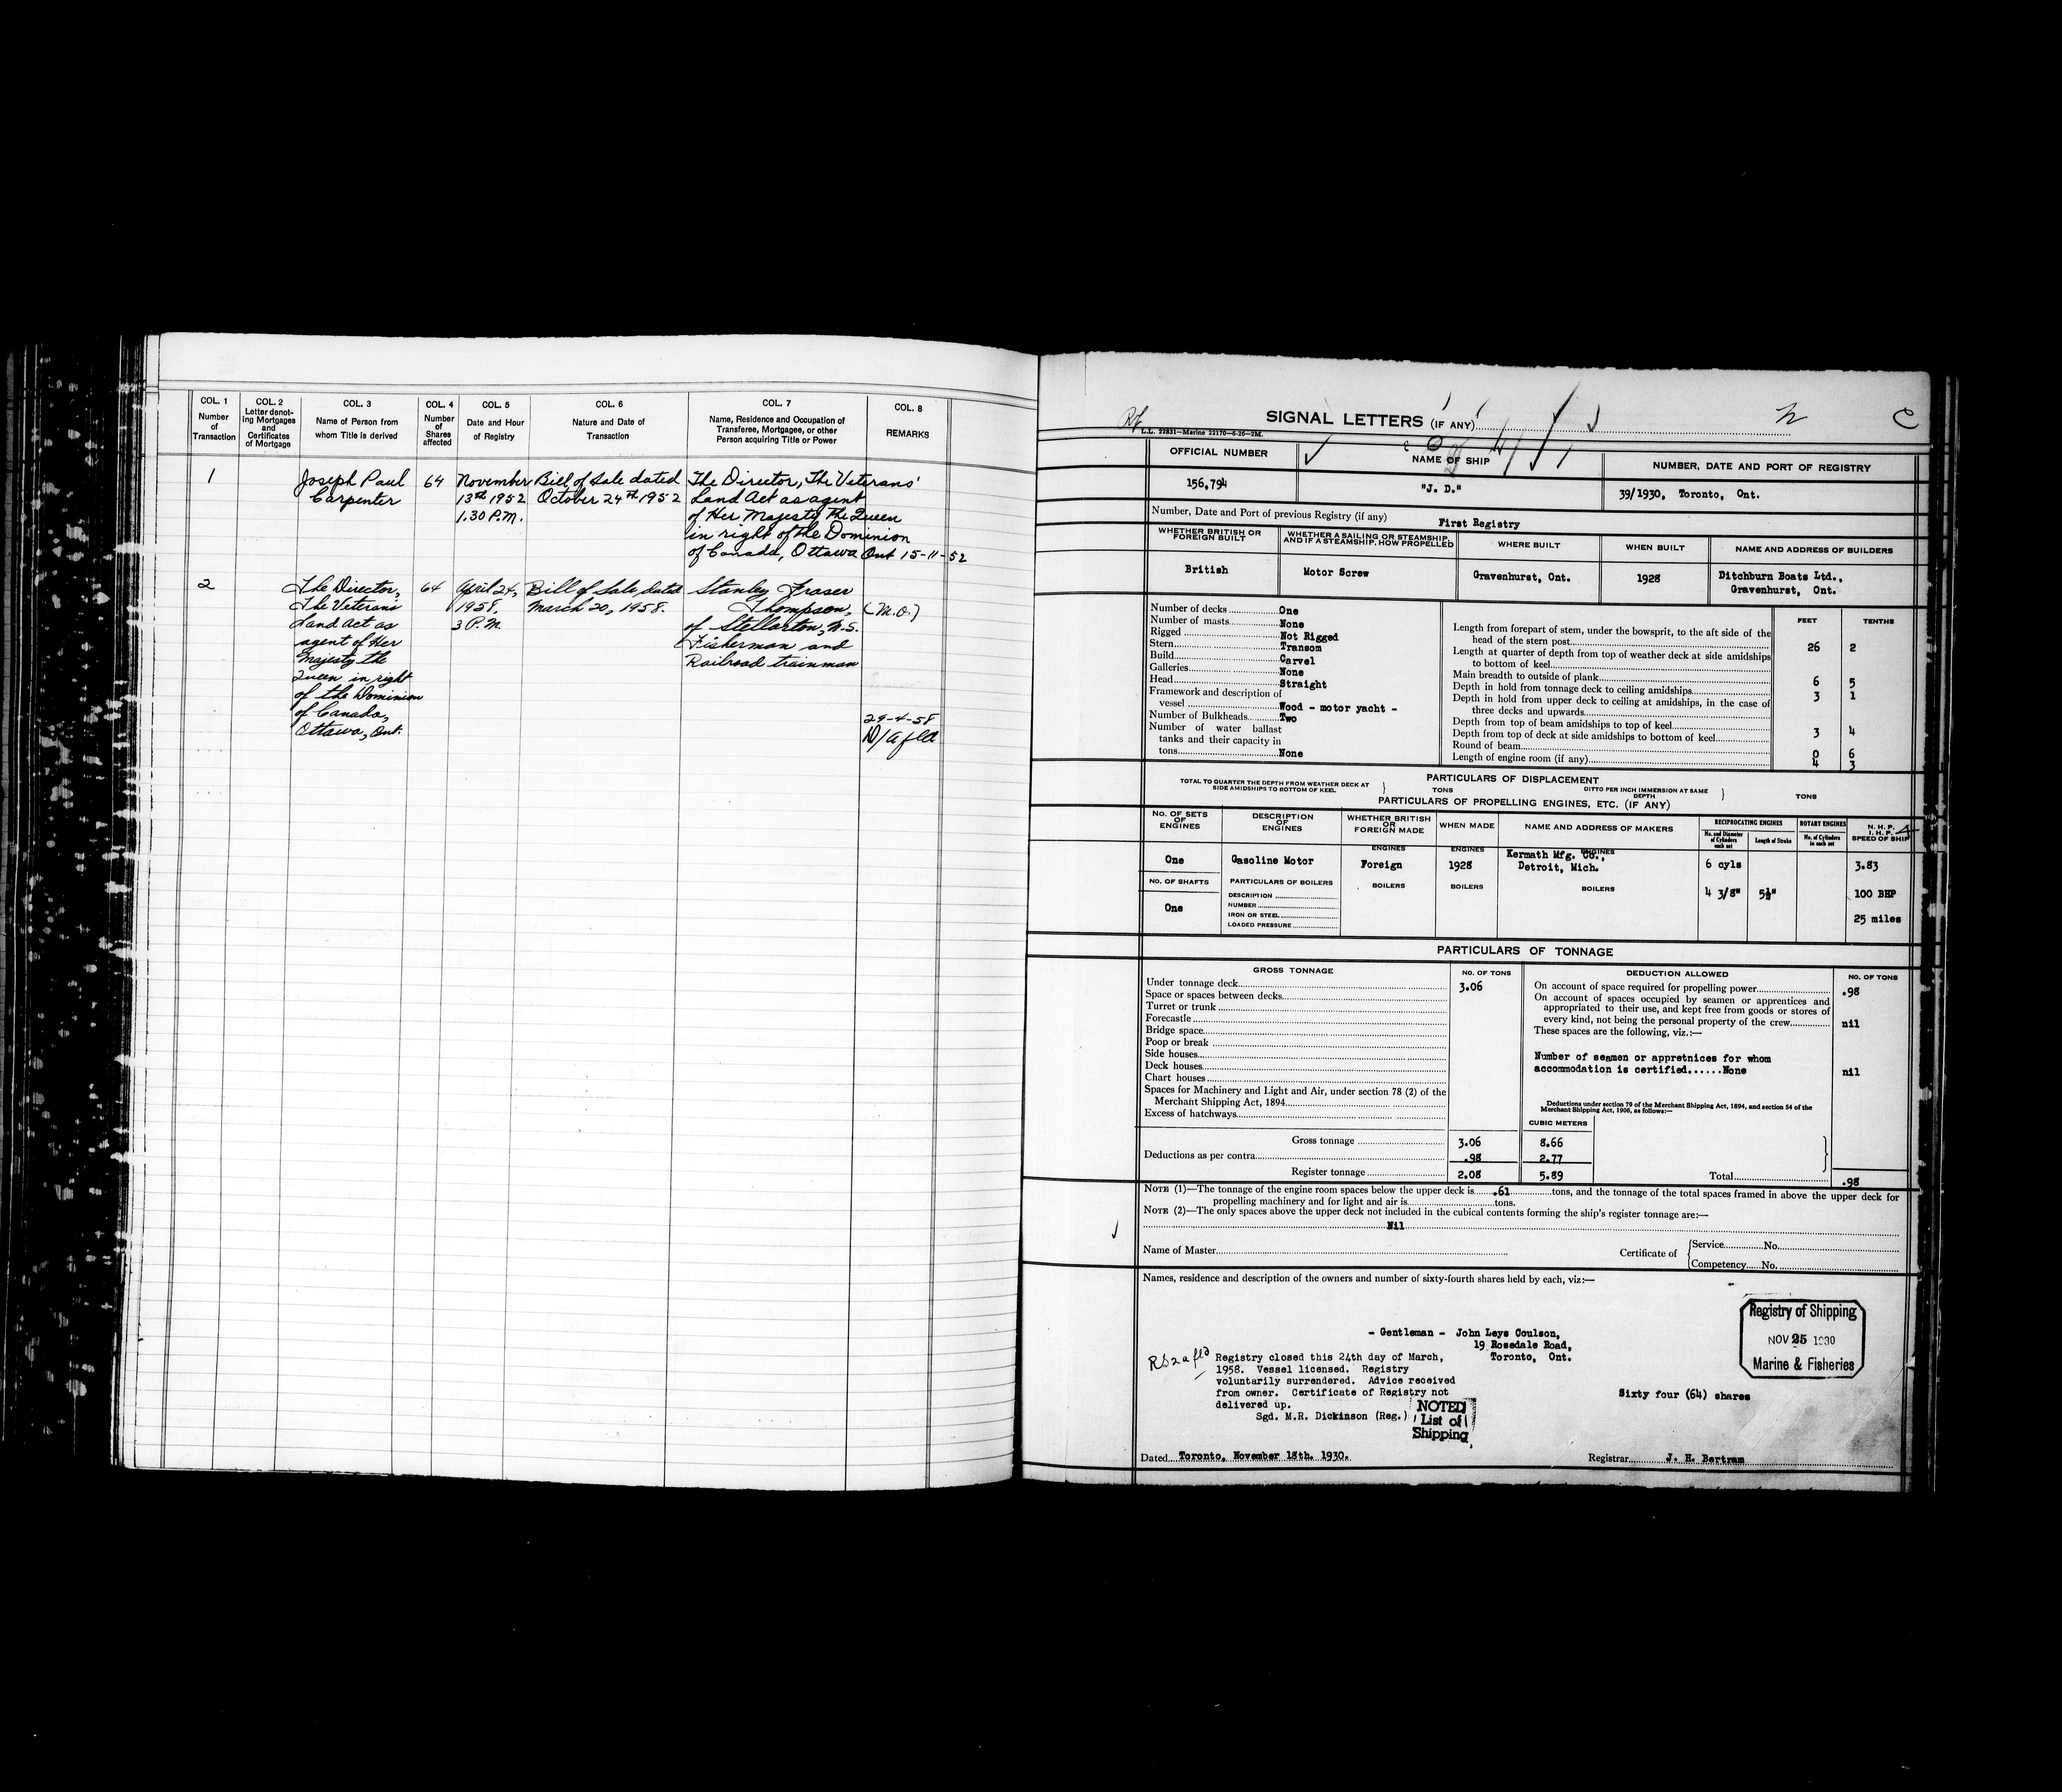 COL. 1
Number
of
Transaction
COL. 2
Letter denot-
ing Mortgages
and
Certificates
of Mortgage
COL. 3
Name of Person from
whom Title is derived
COL. 4
Number
of
Shares
affected
COL. 5
Date and Hour
of Registry
COL. 6
Nature and Date of
Transaction
COL. 7
Name, Residence and Occupation of
Transferee, Mortgagee, or other
Person acquiring Title or Power
COL. 8
REMARKS
1
Joseph Paul
Carpenter
64
November
13th 1952
1.30 P.M.
Bill of Sale dated
October 24th 1952
The Director, The Veterans'
Land Act as agent
of Her Majesty The Queen
in right of the Dominion
of Canada, Ottawa Ont 15-11-52
2
The Director,
The Veterans
Land Act as
agent of Her
Majesty the
Queen in right
of the Dominion
of Canada,
Ottawa, Ont.
64
April 24,
1958,
3 P.M.
Bill of Sale, dated
March 20, 1958.
Stanley Fraser
Thompson,
of Stellarton, N.S.
Fisherman and
Railroad trainman
(M.O.)
29-4-58
SIGNAL LETTERS (IF ANY)
L.L. 22831—Marine 22170—6-26—2M.
OFFICIAL NUMBER
NAME OF SHIP
NUMBER, DATE AND PORT OF REGISTRY
156,794
"J. D."
39/1930, Toronto, Ont.
Number, Date and Port of previous Registry (if any) First Registry
WHETHER BRITISH OR
FOREIGN BUILT
WHETHER A SAILING OR STEAMSHIP,
AND IF A STEAMSHIP, HOW PROPELLED
WHERE BUILT
WHEN BUILT
NAME AND ADDRESS OF BUILDERS
British
Motor Screw
Gravenhurst, Ont.
1928
Ditchburn Boats Ltd.,
Gravenhurst, Ont.
Number of decks One
Number of masts None
Rigged Not Rigged
Stern Transom
Build Carvel
Galleries None
Head Straight
Framework and description of
vessel Wood - motor yacht -
Number of Bulkheads Two
Number of water ballast
tanks and their capacity in
tons None
FEET TENTHS
Length from forepart of stem, under the bowsprit, to the aft side of the
head of the stern post 26 2
Length at quarter of depth from top of weather deck at side amidships
to bottom of keel
Main breadth to outside of plank 6 5
Depth in hold from tonnage deck to ceiling amidships 3 1
Depth in hold from upper deck to ceiling at amidships, in the case of
three decks and upwards
Depth from top of beam amidships to top of keel
Depth from top of deck at side amidships to bottom of keel 3 4
Round of beam 0 6
Length of engine room (if any) 4 3
PARTICULARS OF DISPLACEMENT
TOTAL TO QUARTER THE DEPTH FROM WEATHER DECK AT
SIDE AMIDSHIPS TO BOTTOM OF KEEL
TONS
DITTO PER INCH IMMERSION AT SAME
DEPTH
TONS
PARTICULARS OF PROPELLING ENGINES, ETC. (IF ANY)
NO. OF SETS
OF
ENGINES
DESCRIPTION
OF
ENGINES
WHETHER BRITISH
OR
FOREIGN MADE
WHEN MADE
NAME AND ADDRESS OF MAKERS
RECIPROCATING ENGINES
No. and Diameter
of Cylinders
each set
Length of Stroke
ROTARY ENGINES
No. of Cylinders
in each set
N. H. P.
I. H. P.
SPEED OF SHIP
ENGINES
ENGINES
ENGINES
One
Gasoline Motor
Foreign
1928
Kermath Mfg. Co.,
Detroit, Mich.
6 cyls
3.83
NO. OF SHAFTS
PARTICULARS OF BOILERS
BOILERS
BOILERS
BOILERS
4 3/8"
5½"
100 BHP
One
DESCRIPTION
NUMBER
IRON OR STEEL
LOADED PRESSURE
25 miles
PARTICULARS OF TONNAGE
GROSS TONNAGE
NO. OF TONS
Under tonnage deck 3.06
Space or spaces between decks
Turret or trunk
Forecastle
Bridge space
Poop or break
Side houses
Deck houses
Chart houses
Spaces for Machinery and Light and Air, under section 78 (2) of the
Merchant Shipping Act, 1894
Excess of hatchways
Gross tonnage 3.06
Deductions as per contra .98
Register tonnage 2.08
DEDUCTION ALLOWED
NO. OF TONS
On account of space required for propelling power .98
On account of spaces occupied by seamen or apprentices and
appropriated to their use, and kept free from goods or stores of
every kind, not being the personal property of the crew nil
These spaces are the following, viz.:—
Number of seamen or appretnices for whom
accommodation is certified......None nil
Deductions under section 79 of the Merchant Shipping Act, 1894, and section 54 of the
Merchant Shipping Act, 1906, as follows:—
CUBIC METERS
8.66
2.77
5.89
Total .98
NOTE (1)—The tonnage of the engine room spaces below the upper deck is .61 tons, and the tonnage of the total spaces framed in above the upper deck for
propelling machinery and for light and air is tons.
NOTE (2)—The only spaces above the upper deck not included in the cubical contents forming the ship's register tonnage are:—
Nil
Name of Master
Certificate of
Service No.
Competency No.
Names, residence and description of the owners and number of sixty-fourth shares held by each, viz:—
Registry of Shipping
NOV 25 1930
Marine & Fisheries
- Gentleman - John Leys Coulson,
19 Rosedale Road,
Toronto, Ont.
Registry closed this 24th day of March,
1958. Vessel licensed. Registry
voluntarily surrendered. Advice received
from owner. Certificate of Registry not
delivered up.
Sgd. M.R. Dickinson (Reg.)
Sixty four (64) shares
NOTED
List of
Shipping
Dated Toronto, November 18th. 1930.
Registrar J. H. Bertram